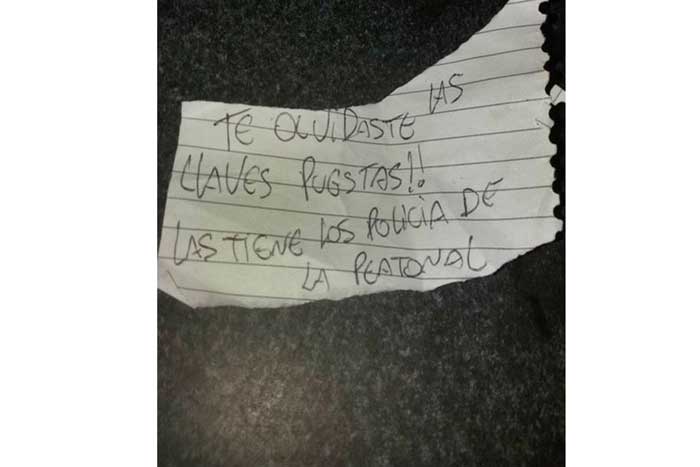 TE OLVIDASTE LAS
LLAVES PUESTAS!!
LAS TIENE LOS POLICÍA DE
LA PEATONAL